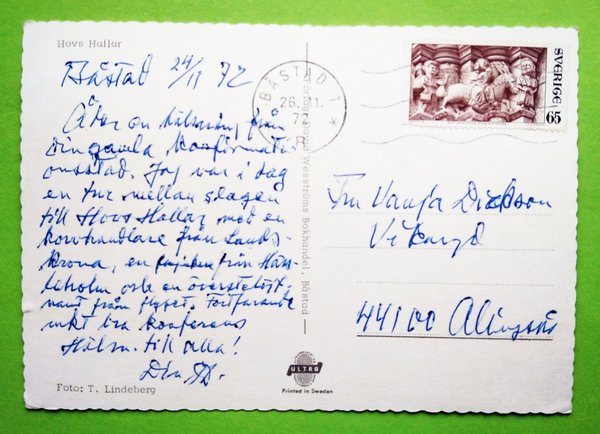 Hovs Hallar
Båstad 24/11 72
Åter en hälsning från
din gamla konfirmations
stad. Jag var i dag
en tur mellan slagen
till Hovs Hallar med en
kornhandlare från Lands-
krona, en från Häss-
leholm och en överstelöjt-
nant från flyget. Fortfarande
mkt bra konferens
Hälsn. till alla!
Din
Foto: T. Lindeberg
BÅSTAD 1
26. 11.
72
Wesströms Bokhandel, Båstad
SVERIGE 65
Fru Vanja Dickson
44100 Alingsås
ULTRA
Printed in Sweden